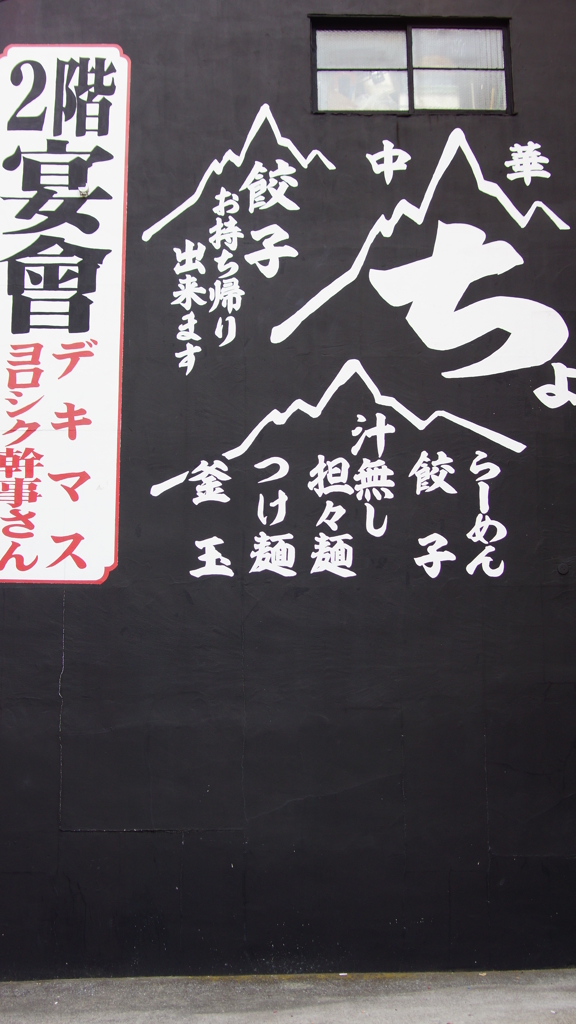 2階
宴會
デキマス
ヨロシク幹事さん
中華
ちょ
餃子
お持ち帰り
出来ます
らーめん
餃子
汁無し
担々麺
つけ麺
釜玉